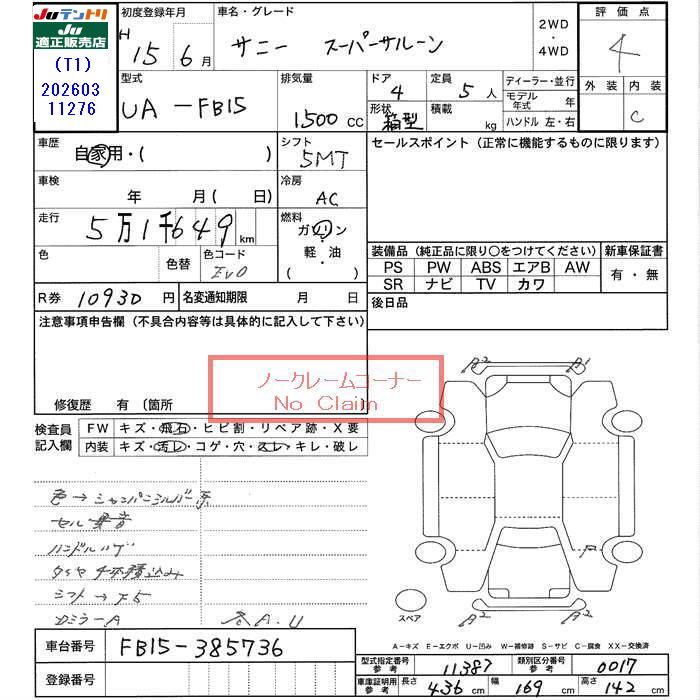 Juテントリ
Ju
適正販売店
(T1)
202603
11276
初度登録年月
H 15 6月
車名・グレード
サニー スーパーサルーン
2WD
・
4WD
評価点
4
型式
UA-FB15
排気量
1500 CC
ドア
4
形状
箱型
定員
5人
積載
kg
ディーラー・並行
モデル年式 年
ハンドル 左・右
外装 内装
C
車歴
自家用・( )
シフト
5MT
セールスポイント (正常に機能するものに限ります)
車検
年 月( 日)
冷房
AC
走行
5万1千649 km
燃料
ガソリン
・
軽・油
( )
色
色替
色コード
EV0
装備品 (純正品に限り○をつけてください)
PS PW ABS エアB AW
SR ナビ TV カワ
新車保証書
有・無
R券 10930 円
名変通知期限 月 日
後日品
注意事項申告欄 (不具合内容等は具体的に記入して下さい)
ノークレームコーナー
No Claim
修復歴 有 〔箇所
検査員
記入欄
FW キズ・飛石・ヒビ割・リペア跡・X要
内装 キズ・汚レ・コゲ・穴・スレ・キレ・破レ
色→シャンパンシルバー系
セル異音
ハンドルハゲ
タイヤ4本積込み
シフト→F5
DミラーA
各A.U
A2 A1
P
A2 A2
スペア
A-キズ E-エクボ U-凹み W-補修跡 S-サビ C-腐食 XX-交換済
車台番号 FB15-385736
登録番号
型式指定番号 参考 11387
類別区分番号 参考 0017
車庫証明用 参考 長さ 436 cm 幅 169 cm 高さ 142 cm